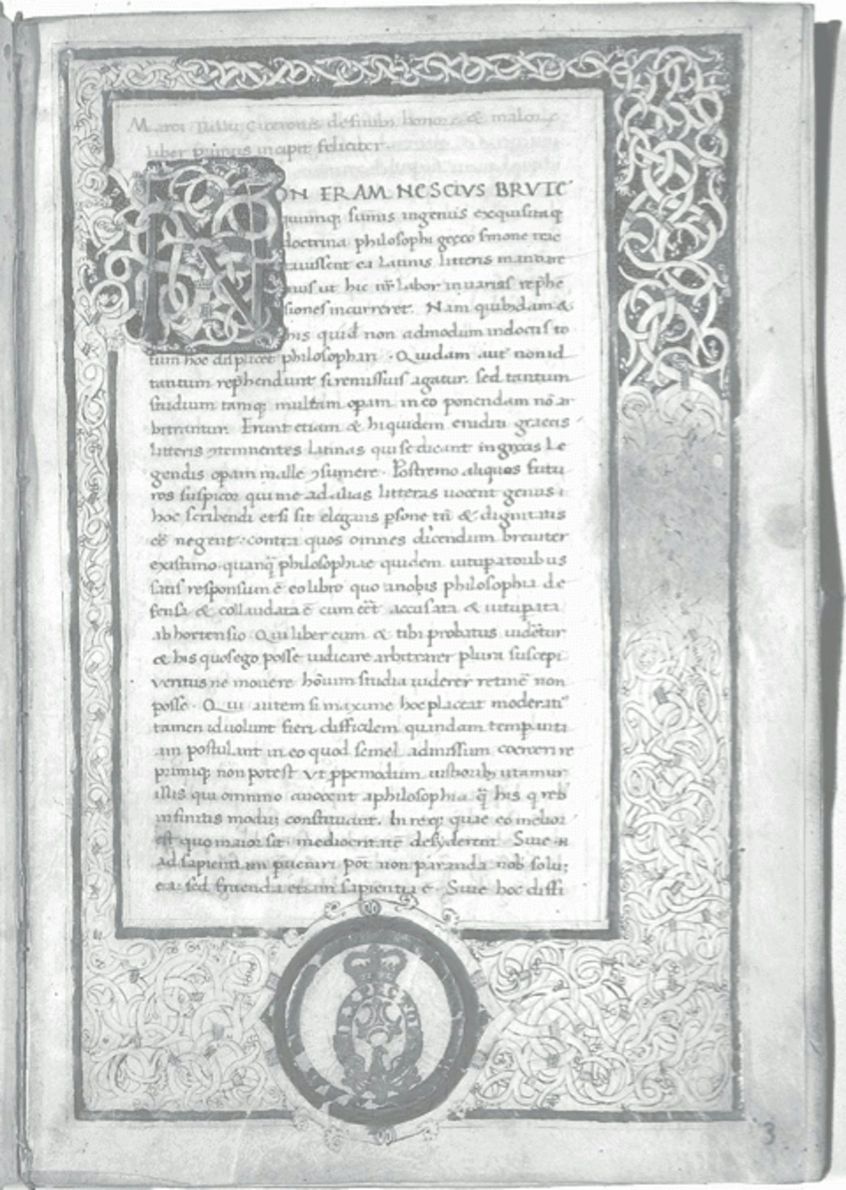 Marci Tullii Ciceronis de finibus bonorum & malorum
liber primus incipit feliciter.
NON ERAM NESCIVS BRVTE
quumq; sumis ingeniis exquisitaq;
doctrina philosophi greco smone trac
tauissent ea Latinis litteris mandare
mus ut hic nr̄ labor in uarias reph̄e
siones incurreret. Nam quibusdam &
his quid non admodum indoctis to
tum hoc displicet philosophari. Quidam aut̄ non id
tantum reph̄endunt si remissius agatur. sed tantum
studium tamq; multam opam in eo ponendam nō ar
bitrantur. Erunt etiam & hi quidem eruditi graecis
litteris ɔtemnentes latinas qui se dicant in grecis le
gendis opam malle ɔsumere. Postremo aliquos futu
ros suspicor qui me ad alias litteras uocent genus
hoc scribendi etsi sit elegans psone tn̄ & dignitatis
ee negent. contra quos omnes dicendum breuiter
existimo quanq̄ philosophiae quidem uituperatoribus
satis responsum ē eo libro quo a nobis philosophia de
fensa & collaudata ē cum eēt accusata & uituperata
ab hortensio Qui liber cum & tibi probatus uidēt̄ur
& his quos ego posse iudicare arbitrarer plura suscepi
veritus ne mouere hōium studia uiderer retinē non
posse. Qui autem si maxime hoc placeat moderati
tamen id uolunt fieri difficilem quandam temperanti
am postulant in eo quod semel admissum coercerire
primiq; non potest Vt ppemodum iustiorib; utamur
illis qui omnino auocent a philosophia q̄ his q reb
infinitis modum constituant. In req; quae eo melior
est quo maior sit mediocritatē desyderent. Siue
ad sapientiam pueniri pōt non paranda nob̄ solu;
ea. sed fruenda etiam sapientia ē. Siue hoc diffi
3